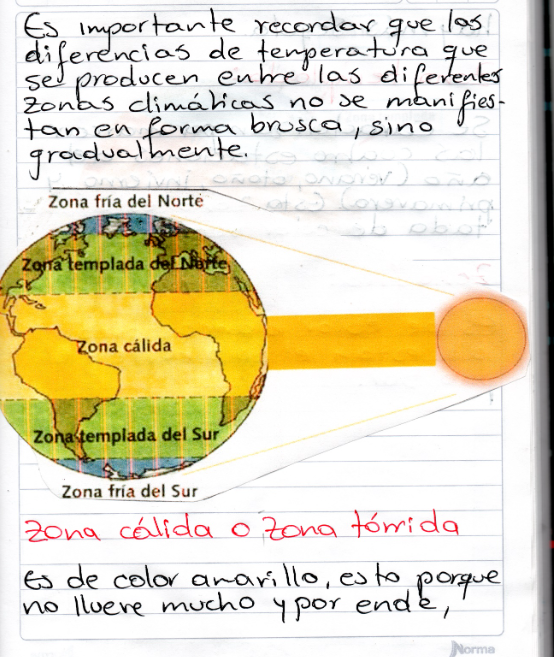 Es importante recordar que las
diferencias de temperatura que
se producen entre las diferentes
zonas climáticas no se manifies-
tan en forma brusca, sino
gradualmente.
Zona fría del Norte
Zona templada del Norte
Zona cálida
Zona templada del Sur
Zona fría del Sur
Zona cálida o Zona tórrida
Es de color amarillo, esto porque
no llueve mucho y por ende,
Norma